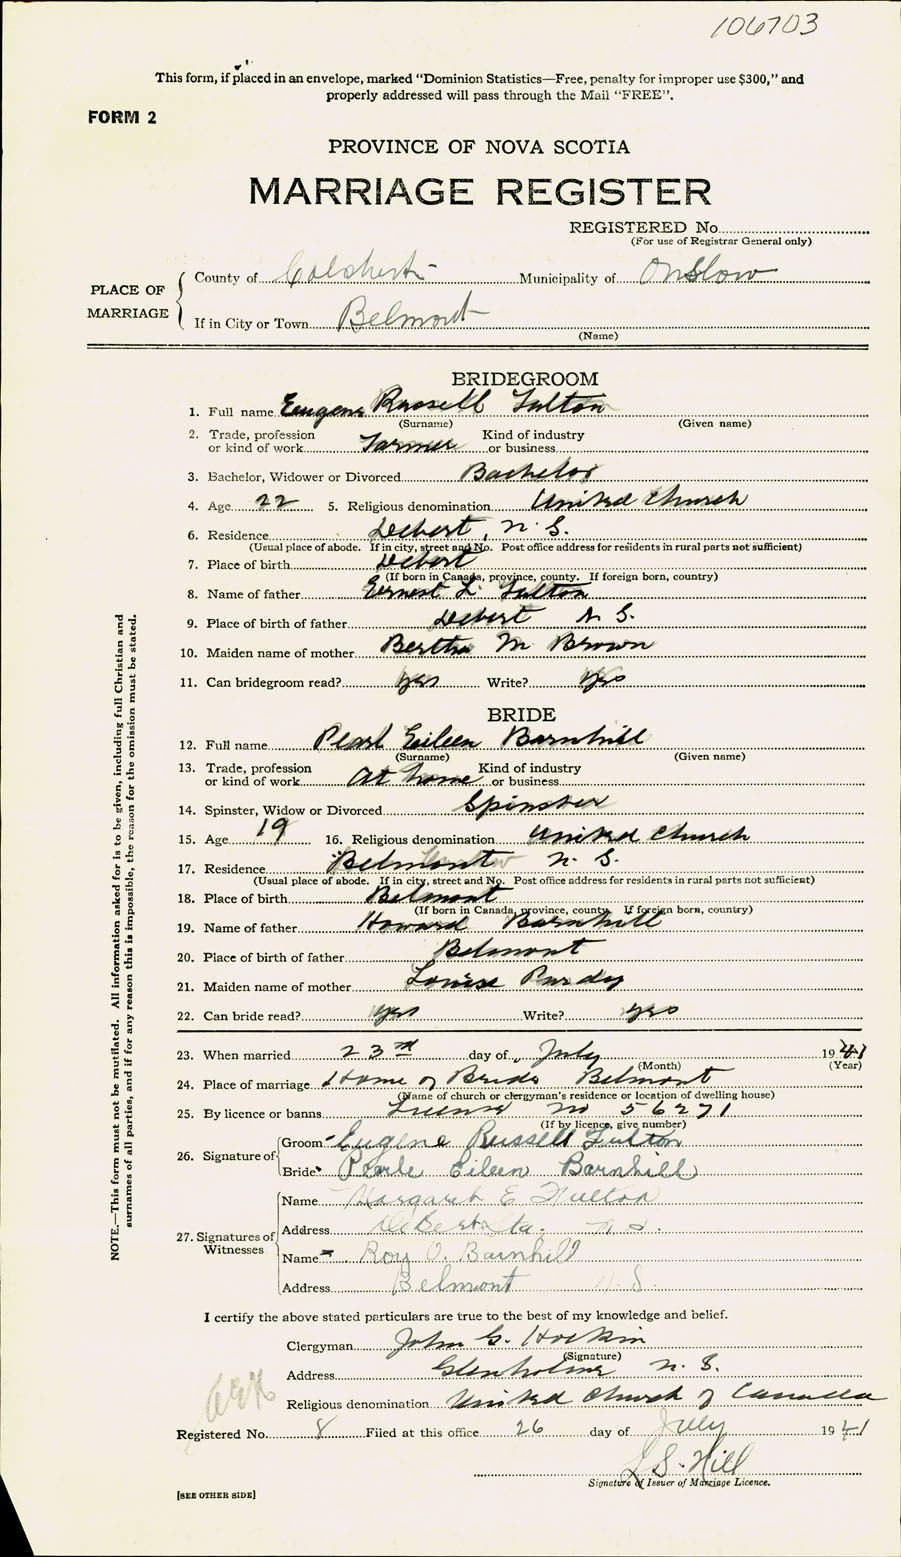 106703
This form, if placed in an envelope, marked "Dominion Statistics—Free, penalty for improper use $300," and
properly addressed will pass through the Mail "FREE".
FORM 2
PROVINCE OF NOVA SCOTIA
MARRIAGE REGISTER
REGISTERED No.
(For use of Registrar General only)
PLACE OF MARRIAGE
County of Colchester Municipality of Onslow
If in City or Town Belmont
(Name)
BRIDEGROOM
1. Full name Eugene Russell Fulton
(Surname) (Given name)
2. Trade, profession or kind of work Farmer Kind of industry or business
3. Bachelor, Widower or Divorced Bachelor
4. Age 22 5. Religious denomination United Church
6. Residence Debert, N.S.
(Usual place of abode. If in city, street and No. Post office address for residents in rural parts not sufficient)
7. Place of birth Debert
(If born in Canada, province, county. If foreign born, country)
8. Name of father Ernest L. Fulton
9. Place of birth of father Debert N.S.
10. Maiden name of mother Bertha M Brown
11. Can bridegroom read? yes Write? yes
BRIDE
12. Full name Pearl Eileen Barnhill
(Surname) (Given name)
13. Trade, profession or kind of work At home Kind of industry or business
14. Spinster, Widow or Divorced Spinster
15. Age 19 16. Religious denomination United Church
17. Residence Belmont N.S.
(Usual place of abode. If in city, street and No. Post office address for residents in rural parts not sufficient)
18. Place of birth Belmont
(If born in Canada, province, county. If foreign born, country)
19. Name of father Howard Barnhill
20. Place of birth of father Belmont
21. Maiden name of mother Louise Purdy
22. Can bride read? yes Write? yes
23. When married 23rd day of July 1941
(Month) (Year)
24. Place of marriage Home of Bride Belmont
(Name of church or clergyman's residence or location of dwelling house)
25. By licence or banns License No 56271
(If by licence, give number)
26. Signature of
Groom Eugene Russell Fulton
Bride Pearle Eileen Barnhill
27. Signatures of Witnesses
Name Margaret E Fulton
Address DeBert Sta. N.S.
Name Roy O. Barnhill
Address Belmont N.S.
I certify the above stated particulars are true to the best of my knowledge and belief.
Clergyman John G. Hockin
(Signature)
Address Glenholme N.S.
Religious denomination United Church of Canada
Registered No. 8 Filed at this office 26 day of July 1941
L S. Hill
Signature of Issuer of Marriage Licence.
[SEE OTHER SIDE]
NOTE.—This form must not be mutilated. All information asked for is to be given, including full Christian and
surnames of all parties, and if for any reason this is impossible, the reason for the omission must be stated.